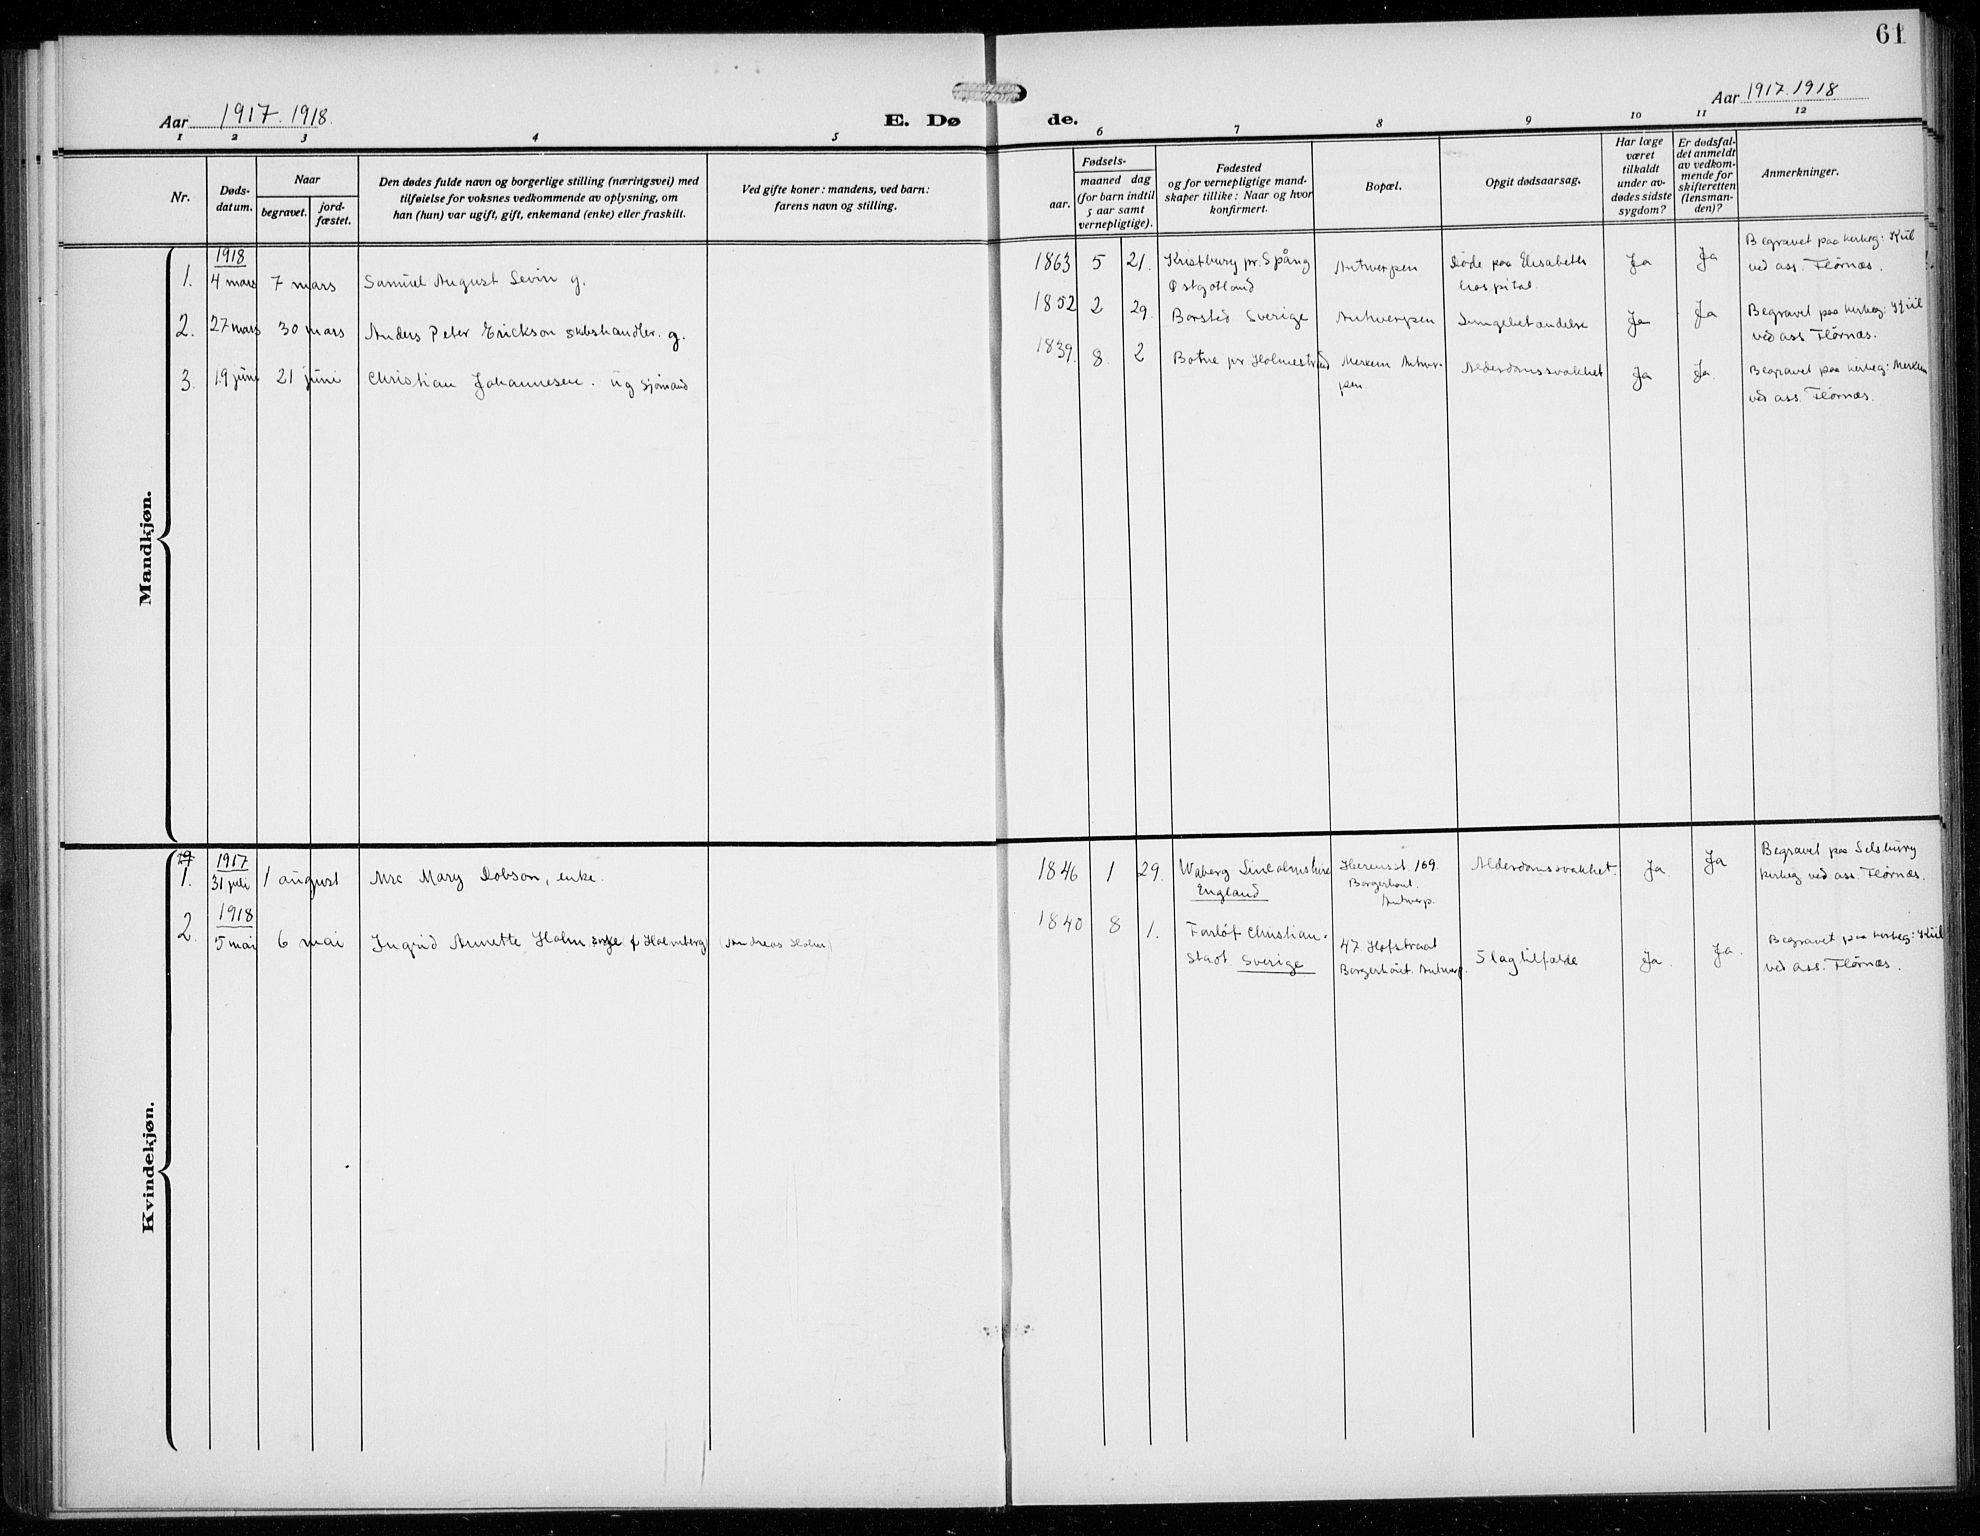 61
Aar 1917.1918.
E. Dø
de.
Aar 1917.1918
1 2 3 4 5 6 7 8 9 10 11 12
Nr.
Døds-
datum.
Naar
begravet.
jord-
fæstet.
Den dødes fulde navn og borgerlige stilling (næringsvei) med
tilføielse for voksnes vedkommende av oplysning, om
han (hun) var ugift, gift, enkemand (enke) eller fraskilt.
Ved gifte koner: mandens, ved barn:
farens navn og stilling.
Fødsels-
aar.
maaned dag
(for barn indtil
5 aar samt
vernepligtige).
Fødested
og for vernepligtige mand-
skaper tillike: Naar og hvor
konfirmert.
Bopæl.
Opgit dødsaarsag.
Har læge
været
tilkaldt
under av-
dødes sidste
sygdom?
Er dødsfal-
det anmeldt
av vedkom-
mende for
skifteretten
(lensman-
den)?
Anmerkninger.
Mandkjøn.
1918
1. 4 mars 7 mars Samuel August Levin g.
1863 5 21. Kristburg pr. Spång
Østgotland
Antwerpen
Døde paa Elisabeth
hospital.
Ja Ja
Begravet paa kirkeg: Kiil
ved ass. Flørnæs.
2. 27 mars 30 mars Anders Peter Erickson skibshandler. g.
1852 2 29. Borsted Sverige Antwerpen Lungebetændelse Ja Ja
Begravet paa kirkeg: Kiil
ved ass Flørnæs.
3. 19 juni 21 juni Christian Johannesen. ug sjømand
1839. 8. 2 Botne pr. Holmestrand
Merxem Antwer-
pen
Alderdomssvakhet Ja Ja.
Begravet paa kirkeg: Merxem
ved ass. Flørnæs.
Kvindekjøn.
1917
1. 31 juli 1 august Mrs Mary Dobson, enke.
1846 1 29. Waberg Lincolnshire
England
Herensst. 169.
Borgerhout.
Antwerp.
Alderdomssvakhet. Ja. Ja
Begravet paa Selsburg
kirkeg ved ass. Flørnæs.
1918
2. 5 mai 6 mai Ingrid Annette Holm enke f Holmberg (Andreas Holm)
1840 8 1. Farløf Christian-
stadt. Sverige
47. Hofstraat
Borgerhout. Antwerp.
Slagtilfælde Ja. Ja.
Begravet paa kirkeg: Kiil
ved ass. Flørnæs.